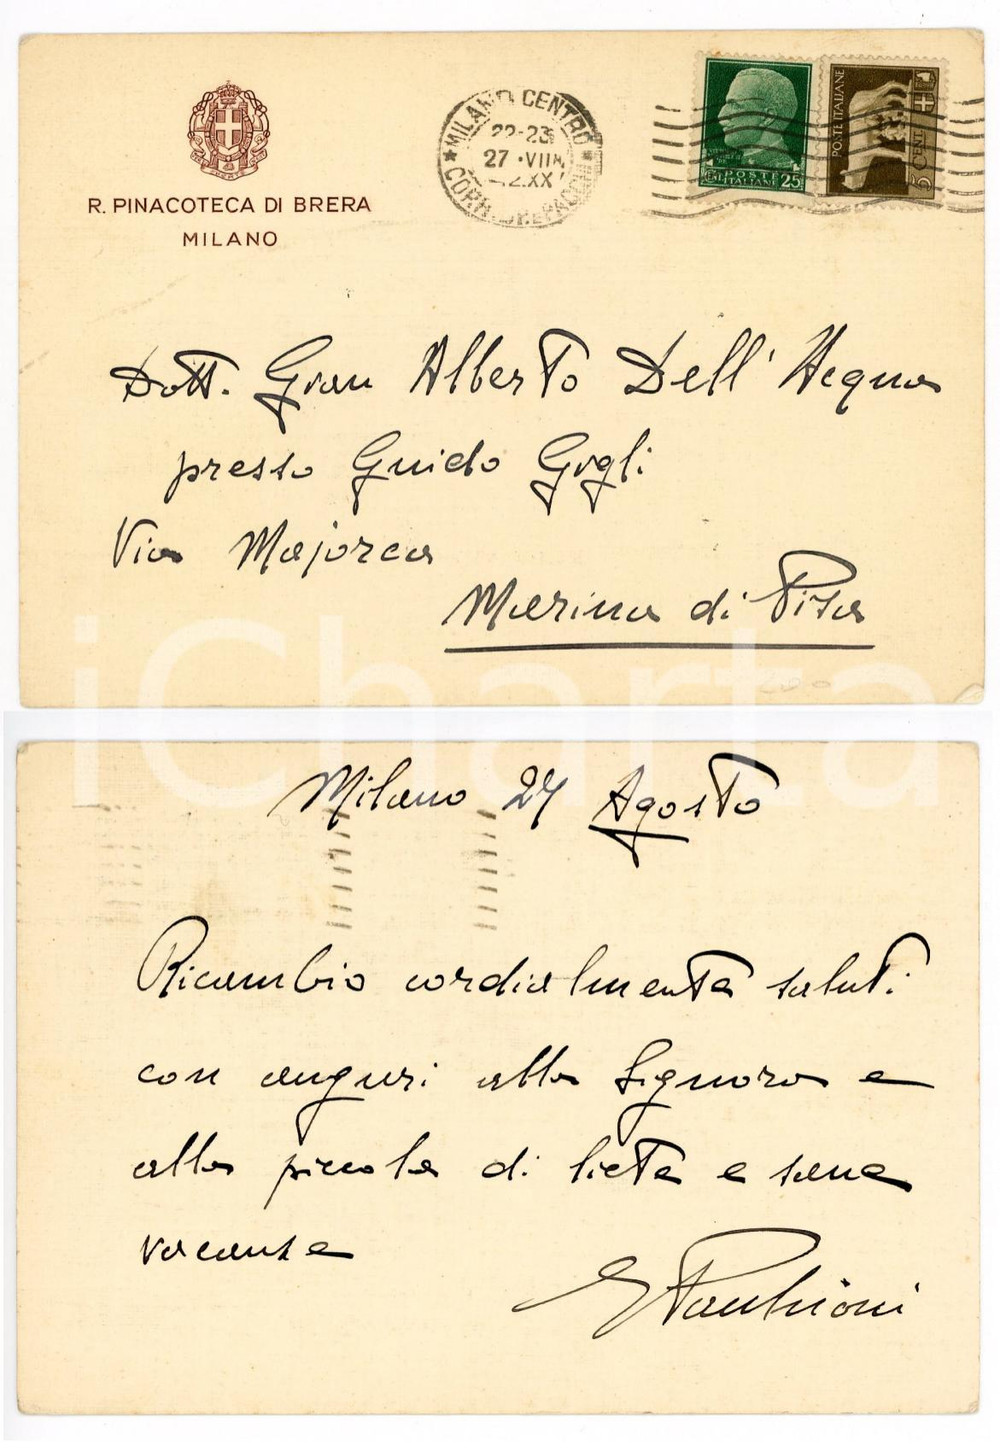 R. PINACOTECA DI BRERA
MILANO
MILANO CENTRO
22-23
27 · VIII
42.XX
POSTE
ITALIANE 25
POSTE ITALIANE
5 CENT
Dott. Gian Alberto Dell' Acqua
presso Guido Gogli
Via Majorca
Marina di Pisa
iCharta
Milano 27 Agosto
Ricambio cordialmente saluti
con auguri alla Signora e
alla piccola di liete e sane
vacanze